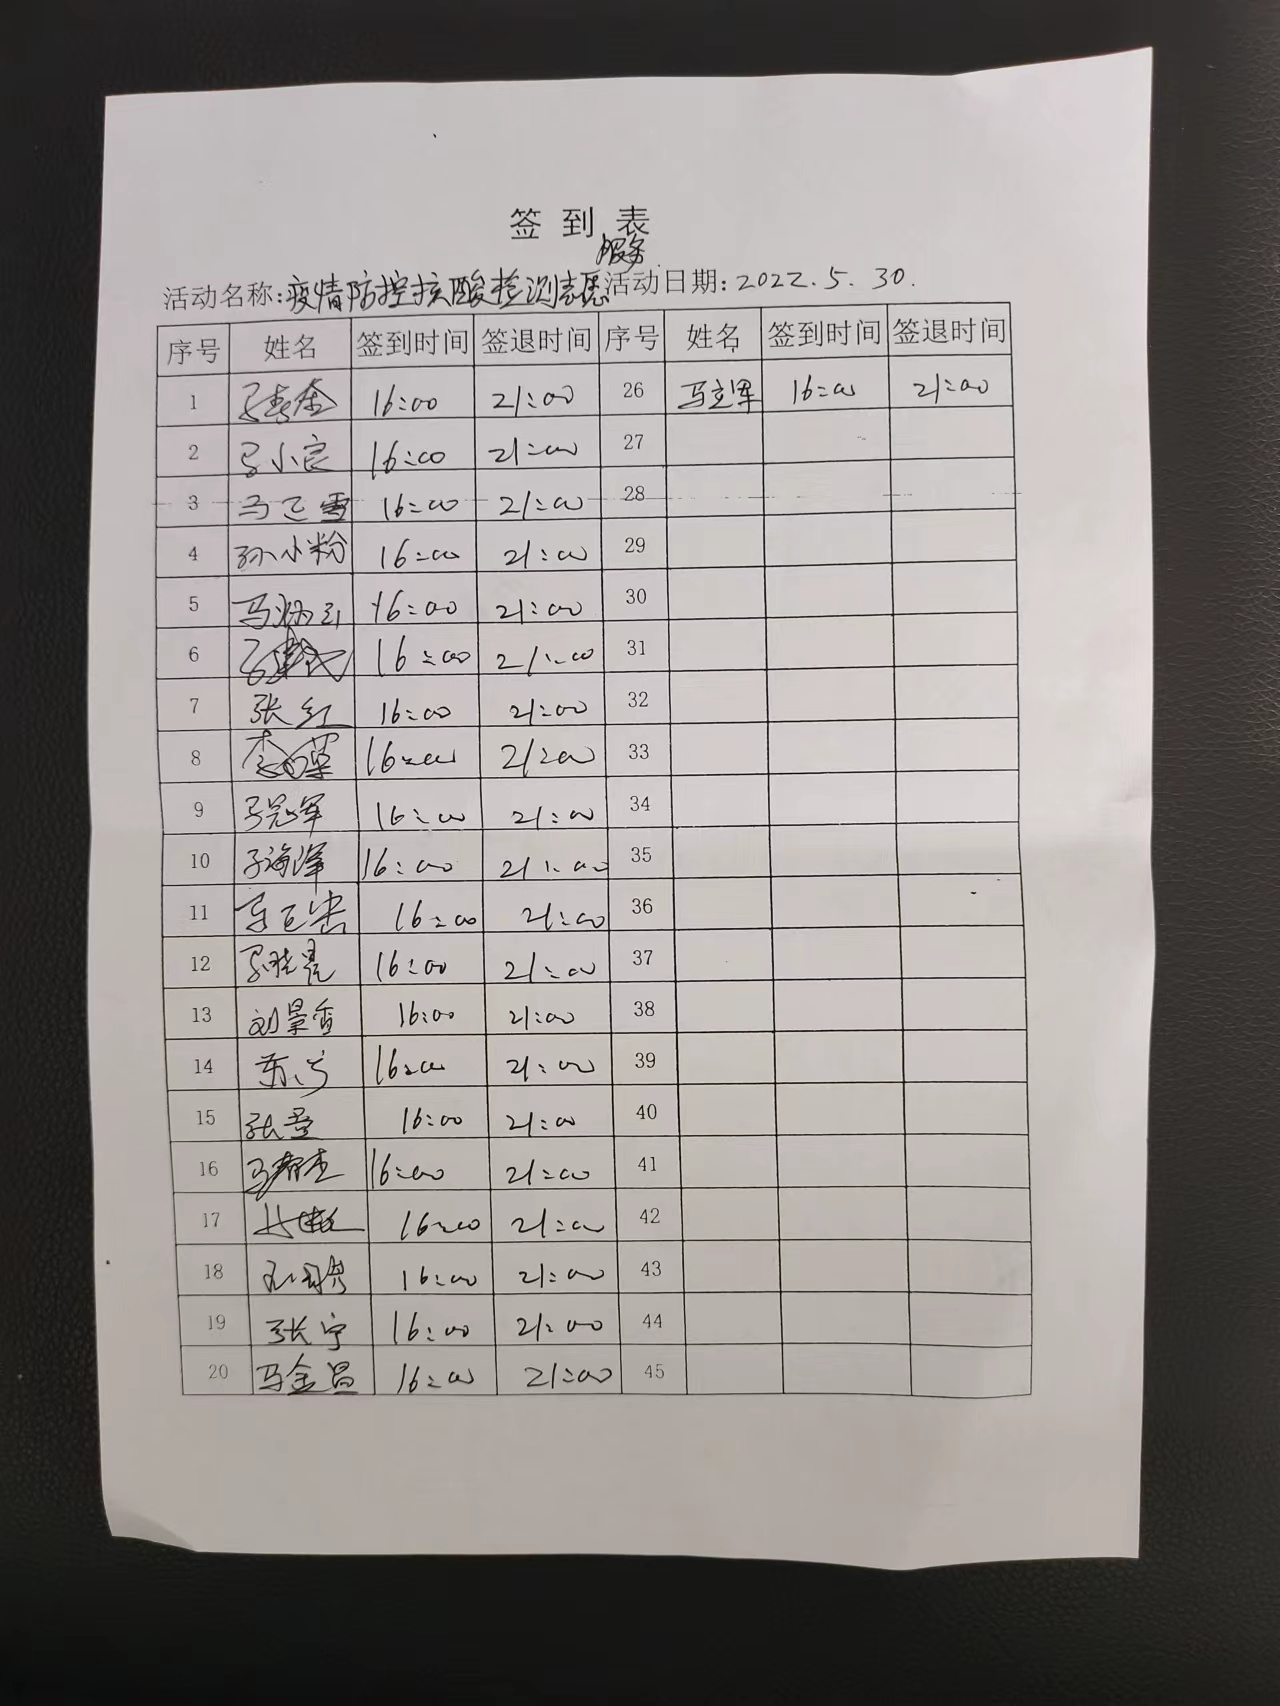 签到表
服务
活动名称:疫情防控核酸检测志愿活动日期:2022.5.30.
序号 姓名 签到时间 签退时间 序号 姓名 签到时间 签退时间
1 16:00 21:00 26 马立军 16:00 21:00
2 马小良 16:00 21:00 27
3 马卫雪 16:00 21:00 28
4 孙小粉 16:00 21:00 29
5 16:00 21:00 30
6 16:00 21:00 31
7 张红 16:00 21:00 32
8 16:00 21:00 33
9 马冠军 16:00 21:00 34
10 16:00 21:00 35
11 16:00 21:00 36
12 马晓亮 16:00 21:00 37
13 刘景香 16:00 21:00 38
14 16:00 21:00 39
15 16:00 21:00 40
16 16:00 21:00 41
17 16:00 21:00 42
18 16:00 21:00 43
19 张宁 16:00 21:00 44
20 马金昌 16:00 21:00 45